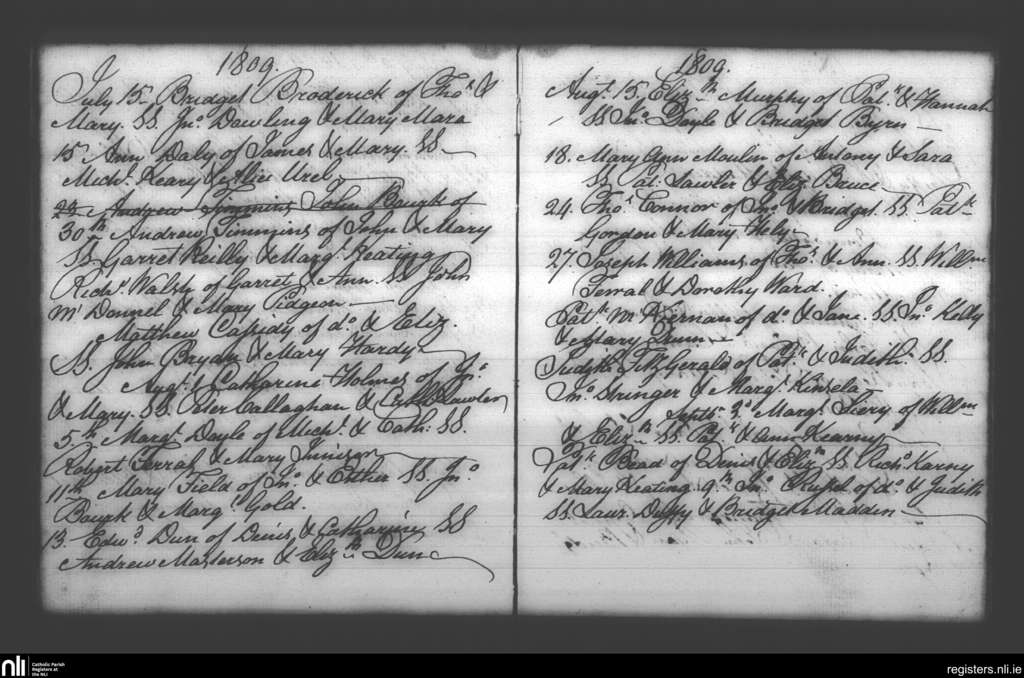 1809.
July 15 Bridget Broderick of Thos. &
Mary. SS. Jno. Dowling & Mary Mara
15 Ann Daly of James & Mary. SS
Michl. Keary & Alice
23 Andrew Timmins John Bourk of
30th Andrew Timmins of John & Mary
SS Garret Reilly & Margt. Keating
Richd. Walsh of Garret & Ann. SS John
Mc Donnel & Mary Pidgeon
Matthew Casidy of do. & Eliz.
SS. John & Mary Hardy
Augt. 1 Catharine Holmes of Jno.
& Mary. SS. Peter Callaghan & Lawler
5th Margt. Doyle of Michl. & Cath: SS.
Robert Ferral & Mary
11th Mary Field of Jno. & Esther SS. Jno.
Bourk & Margt. Gold.
13. Edwd. Dun of Denis, & Catharine SS
Andrew Masterson & Elizth. Dun
1809.
Augt. 15. Elizth. Murphy of Patk. & Hannah
SS Jno. Doyle & Bridget Byrn
18. Mary Ann Moulin of Antony & Sara
SS Pat. Lawler & Eliz. Bruce
24. Thos. Connor of Jno. & Bridget. SS. Patk.
Gordon & Mary Hely
27. Joseph Williams of Thos. & Ann. SS. Willm.
Ferral & Dorothy Ward.
Patk. Mc Kiernan of do. & Jane. SS Jno. Kelly
& Mary Dunn
Judith FitzGerald of Patk. & Judith. SS.
Jno. Stringer & Margt. Kinsela
Septr. 3d. Margt. Leery of Willm.
& Elizth. SS Patk. & Ann Kearny
Patk. Bead of Denis & Elizth. SS Richd. Karny
& Mary Keating. 9th. Jno. Rusel of do. & Judith
SS. Laur. Duffy & Bridget Madden
nli
Catholic Parish
Registers at
the NLI
registers.nli.ie